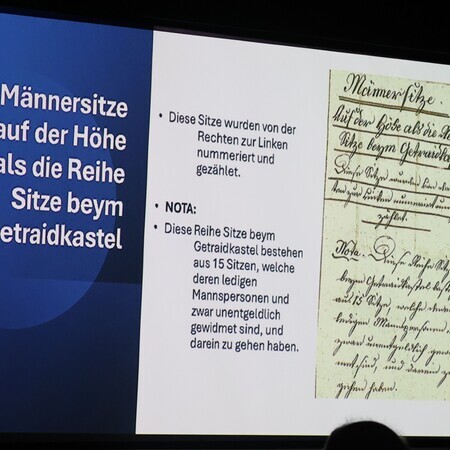 Männersitze
auf der Höhe
als die Reihe
Sitze beym
etraidkastel
• Diese Sitze wurden von der
Rechten zur Linken
nummeriert und
gezählet.
• NOTA:
• Diese Reihe Sitze beym
Getraidkastel bestehen
aus 15 Sitzen, welche
deren ledigen
Mannspersonen und
zwar unentgeldlich
gewidmet sind, und
darein zu gehen haben.
Männersitze.
Auf der Höhe als die
Sitze beym Getraidkas
Diese Sitze wurden von
ten zur Linken nummeriert un
zählet.
Nota. Diese Reihe Sitz
beym Getraidkastel be
aus 15 Sitze, welche
ledigen Mannspersonen
zwar unentgeldlich gew
met sind, und darein z
gehen haben.